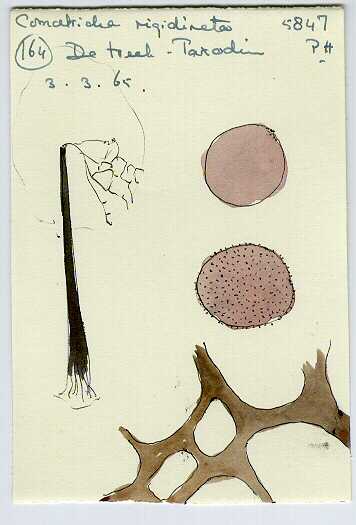 Comatricha rigidireta 5847
164 De Hoek - Paradin PH
3. 3. 65.